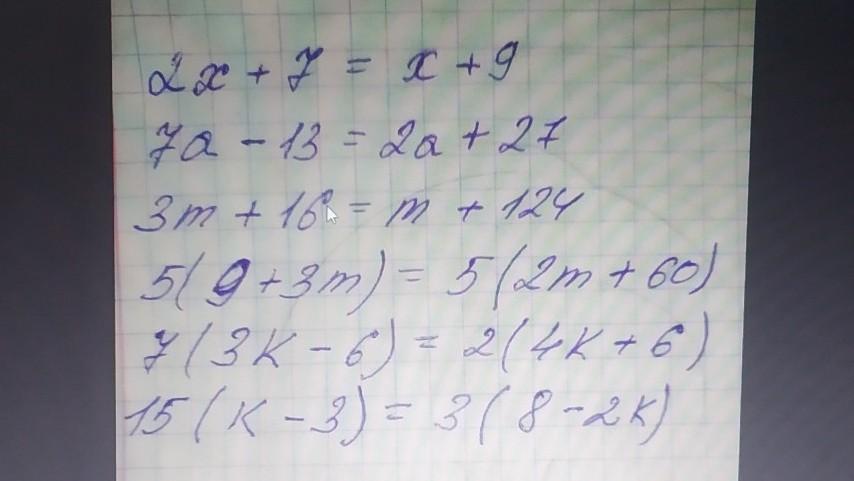 2x + 7 = x + 9
7a - 13 = 2a + 27
3m + 16 = m + 124
5(9 + 3m) = 5(2m + 60)
7(3k - 6) = 2(4k + 6)
15(k - 3) = 3(8 - 2k)